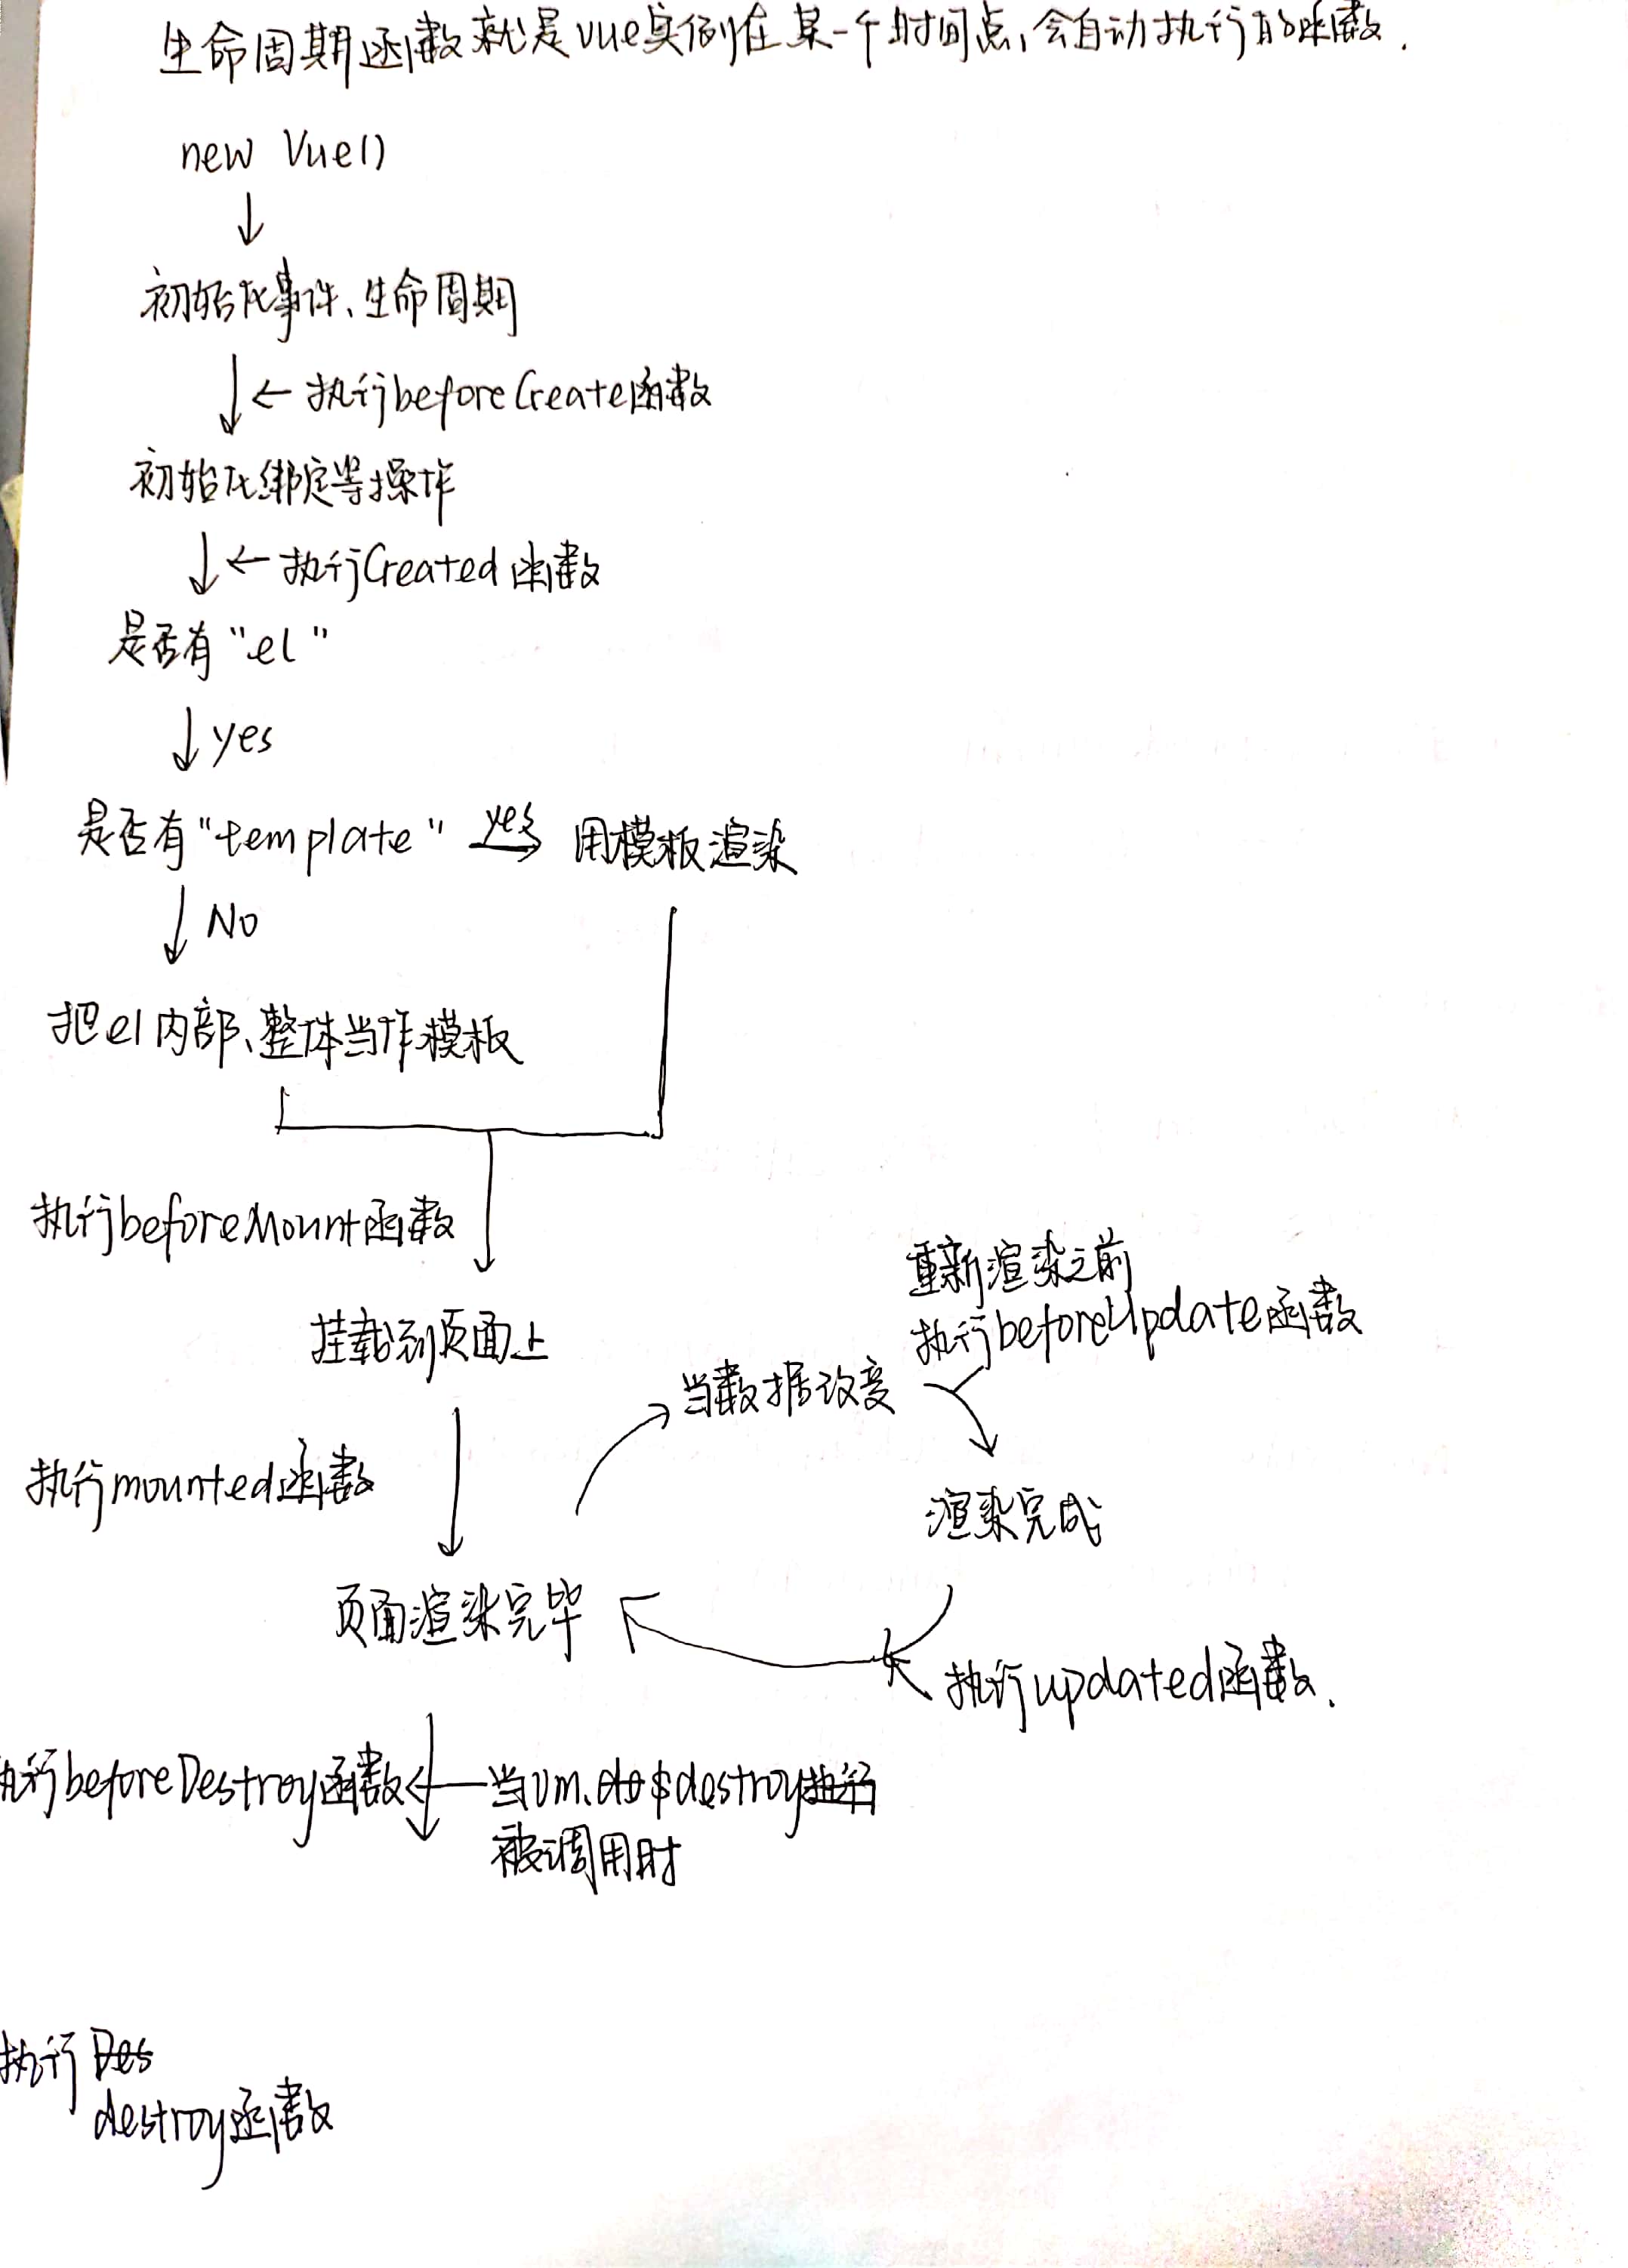 生命周期函数就是vue实例在某一个时间点,会自动执行的函数.
new Vue()
初始化事件、生命周期
执行beforeCreate函数
初始化绑定等操作
执行Created函数
是否有"el"
yes
是否有"template" yes 用模板渲染
No
把el内部、整体当作模板
执行beforeMount函数
挂载到页面上
重新渲染之前
执行beforeUpdate函数
当数据改变
执行mounted函数
渲染完成
页面渲染完毕
执行updated函数.
执行beforeDestroy函数
当vm.$destroy
被调用时
执行
destroy函数